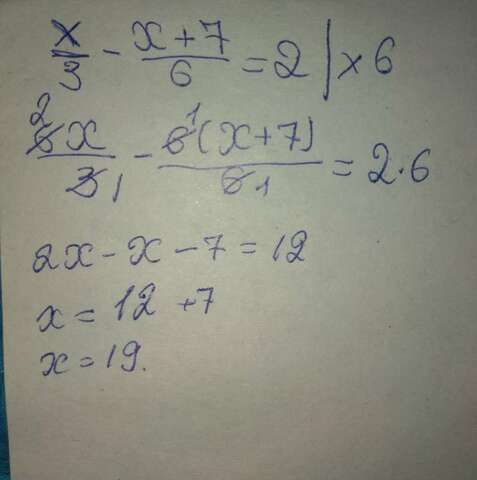 x/3 - x+7/6 = 2 | × 6
6x/3 - 6(x+7)/6 = 2·6
2x - x - 7 = 12
x = 12 + 7
x = 19.